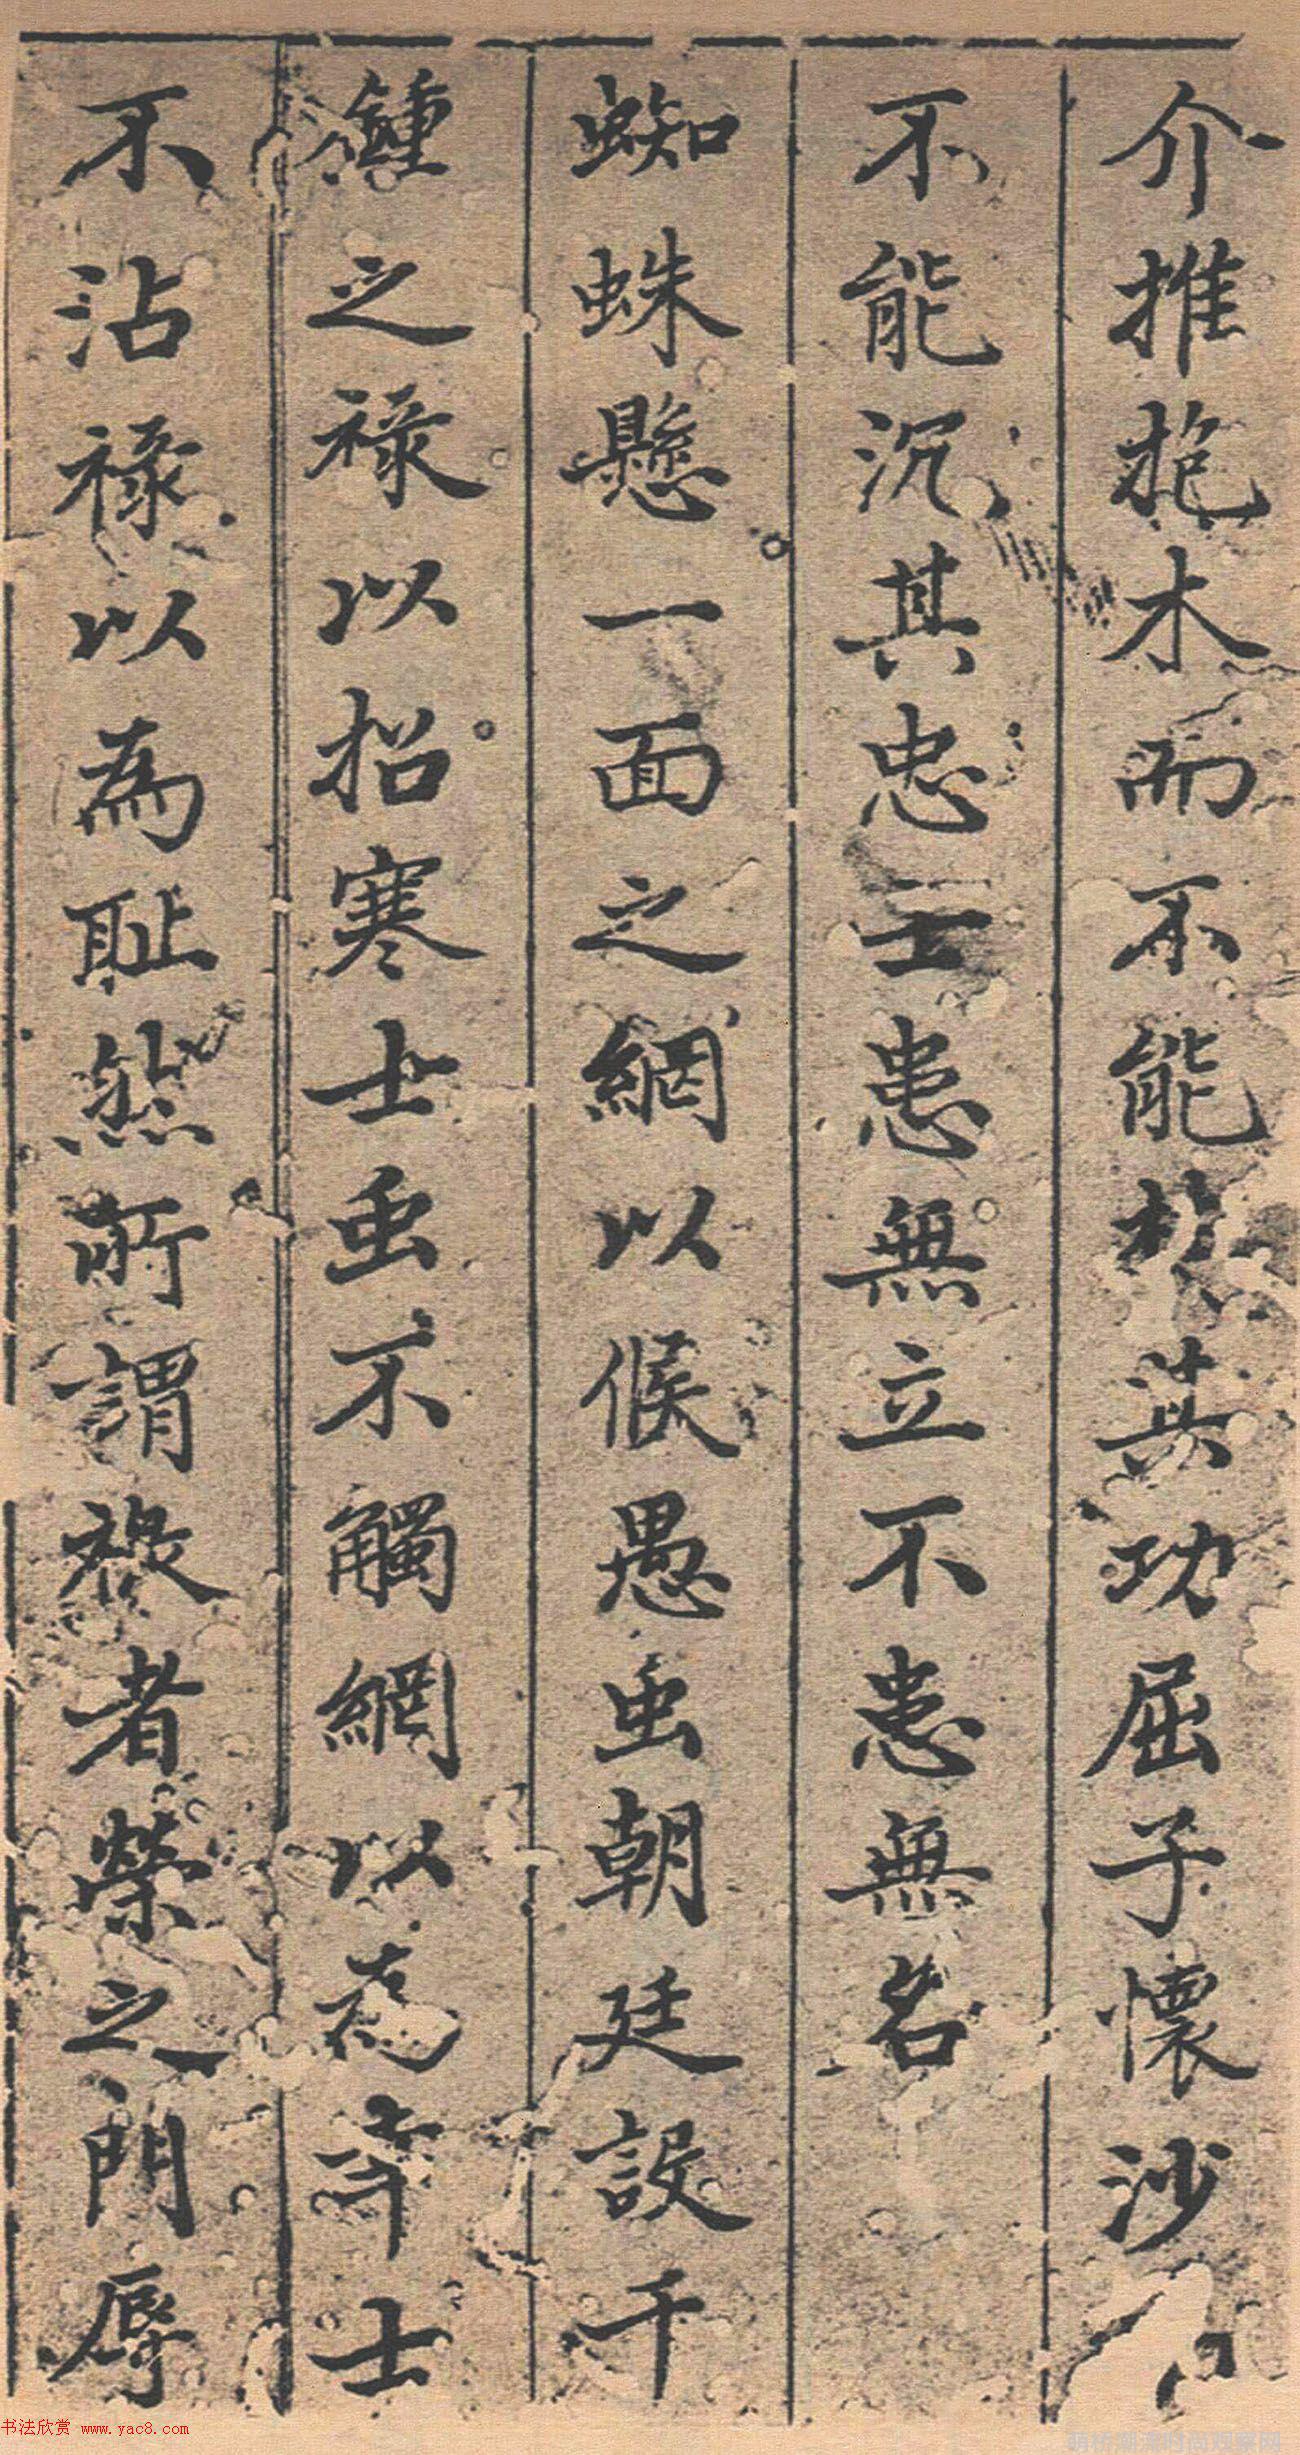 介推抱木而不能焚其功屈子懷沙而
不能沉其忠士患無立不患無名
蜘蛛懸一面之網以候愚虫朝廷設千
鍾之禄以招寒士虫不觸網以為幸士
不沾禄以為耻然所謂禄者榮之門辱
书法欣赏 www.yac8.com